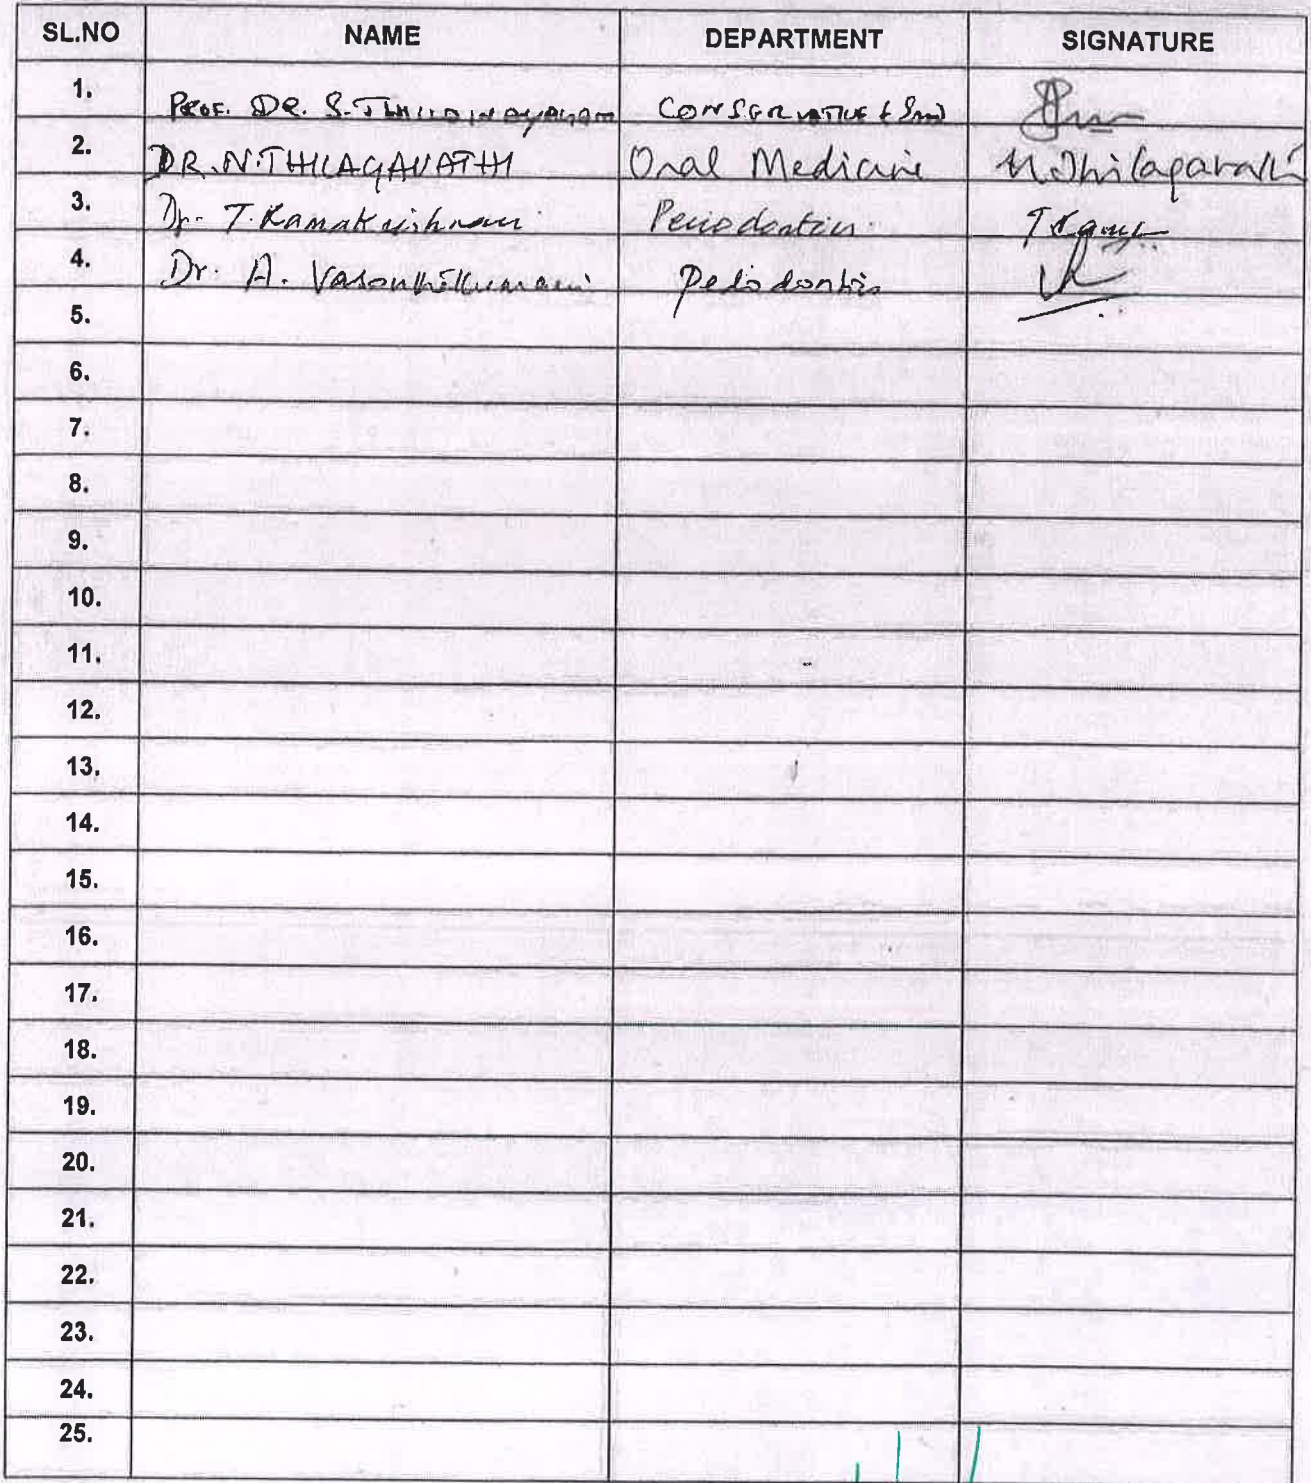 SL.NO NAME DEPARTMENT SIGNATURE
1. PROF. DR. S. CONSERVATIVE
2. DR. N. THILAGAVATHI Oral Medicine N. Thilagavathi
3. Dr. T. Ramakrishnan Periodontics
4. Dr. A. Vasanthakumari Pedodontics
5.
6.
7.
8.
9.
10.
11.
12.
13.
14.
15.
16.
17.
18.
19.
20.
21.
22.
23.
24.
25.